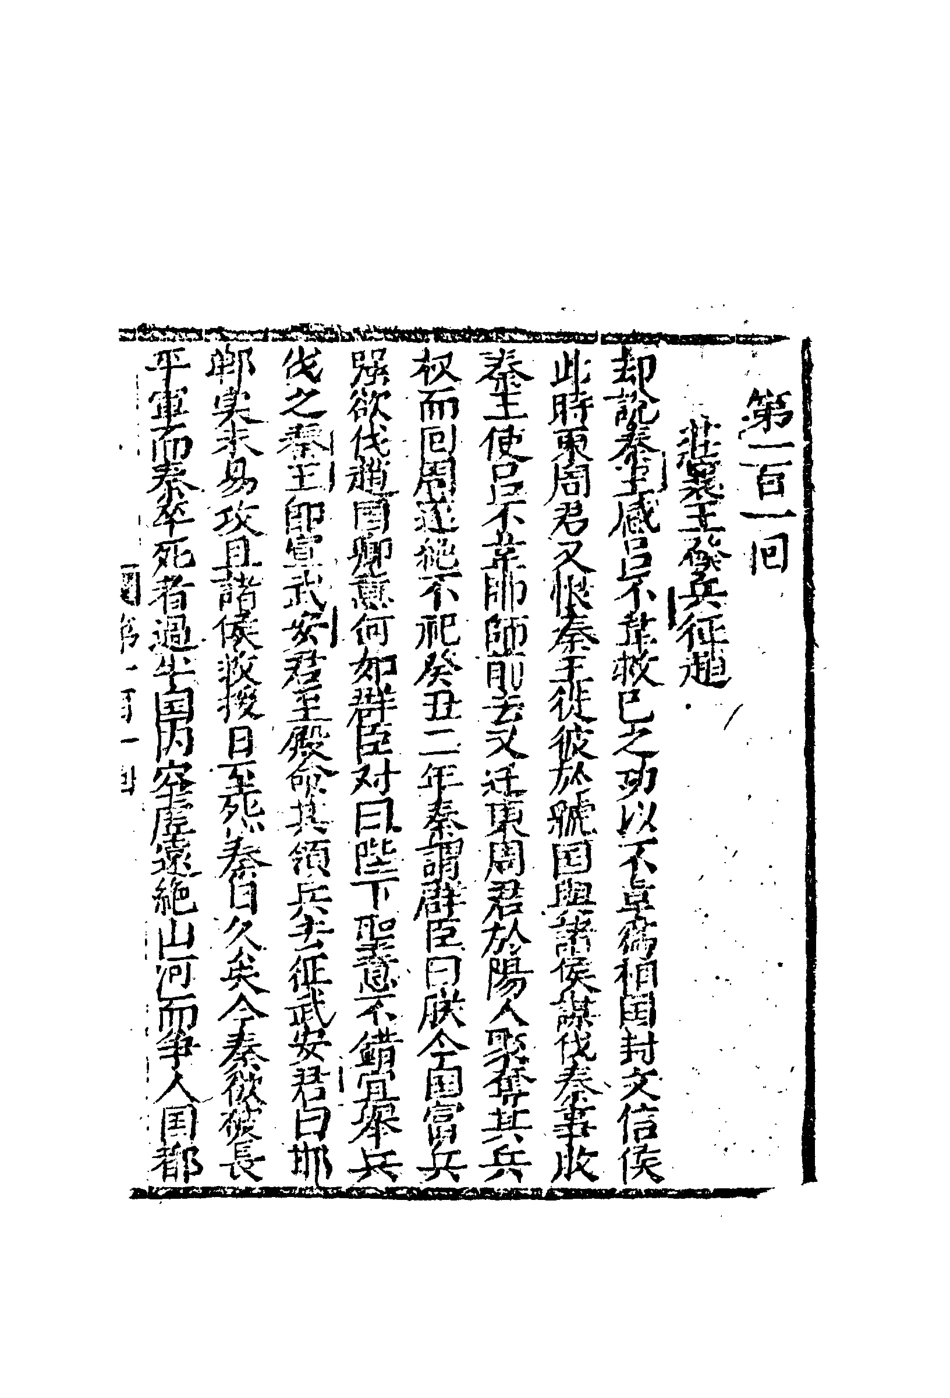 第一百一回
莊襄王發兵征趙
却說秦王感呂不韋救己之功以不韋為相国封文信侯
此時東周君又恨秦王徙彼於號国與諸侯謀伐秦事敗
秦王使呂不韋帥師前去又迁東周君於陽人聚奪其兵
权而回周遂絶不祀癸丑二年秦謂群臣曰朕今国富兵
強欲伐趙国卿意何如群臣对曰陛下聖意不錯宜举兵
伐之秦王即宣武安君至殿命其領兵去征武安君曰邯
鄲实未易攻且諸侯救援日至怨秦日久矣今秦欲破長
平軍而秦卒死者過半国内空虛遠絶山河而争人国都
第一百一回